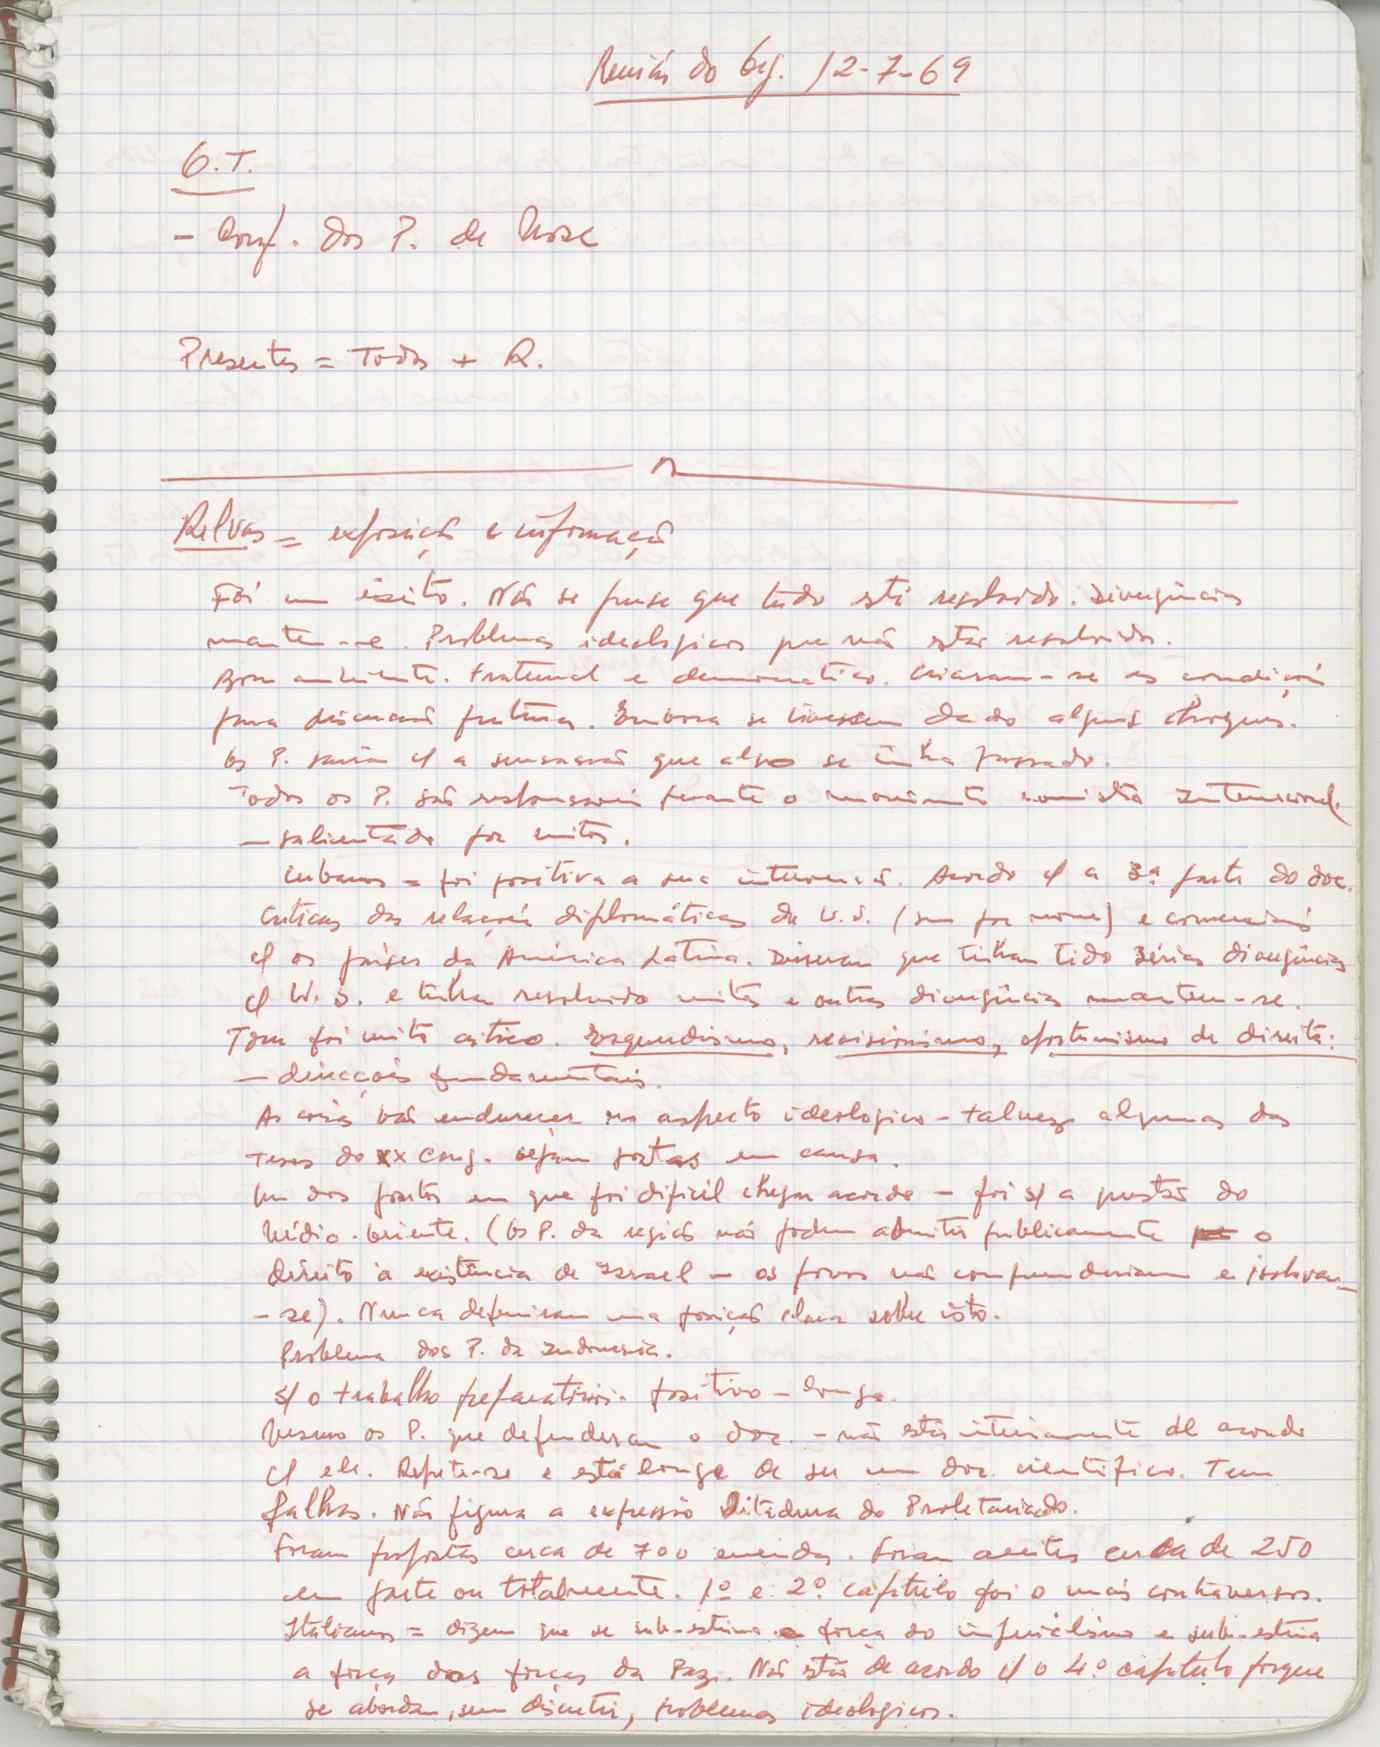 Reunião do Org. 12-7-69
O.T.
- Conf. dos P. de Mosc
Presentes = Todos + R.
Relvas = exposição e informação
Foi um êxito. Não se pense que tudo está resolvido. Divergências
mantem-se. Problemas ideologicos que não estão resolvidos.
Bom ambiente. Fraternal e democratico. Criaram-se as condições
para discussão futura. Embora se tivessem dado alguns choques.
Os P. saiam c/ a sensação que algo se tinha passado.
Todos os P. são responsaveis perante o movimento comunista Internacional
- salientado por muitos.
Cubanos = foi positiva a sua intervenção. Acordo c/ a 3ª parte do doc.
Criticas das relações diplomáticas da U.S. (sem por nome) e comerciais
c/ os países da América Latina. Disseram que tinham tido sérias divergências
c/ U.S. e tinha resolvido muitas e outras divergências mantem-se.
Tom foi muito critico. Esquerdismo, revisionismo, oportunismo de direita:
- direcções fundamentais.
As coisas vão endurecer no aspecto ideologico - talvez algumas das
Teses do XX Cong. sejam postas em causa.
Um dos pontos em que foi dificil chegar acordo - foi s/ a questão do
Médio-Oriente. (Os P. da região não podem admitir publicamente o
direito à existência de Israel - os povos não compreenderiam e isolavam-
-se). Nunca definiram uma posição clara sobre isto.
Problema dos P. da Indonesia.
s/ o trabalho preparatório. positivo - longo.
Mesmo os P. que defenderam o doc. - não estão inteiramente de acordo
c/ ele. Repete-se e está longe de ser um doc. cientifico. Tem
falhas. Não figura a expressão Ditadura do Proletariado.
Foram propostas cerca de 700 emendas. Foram aceites cerca de 250
em parte ou totalmente. 1º e 2º capitulo foi o mais controverso.
Italianos = dizem que se sub-estima a força do imperialismo e sub-estima
a força das forças da Paz. Não estão de acordo c/ o 4.º capitulo porque
se abordam, sem discutir, problemas ideologicos.